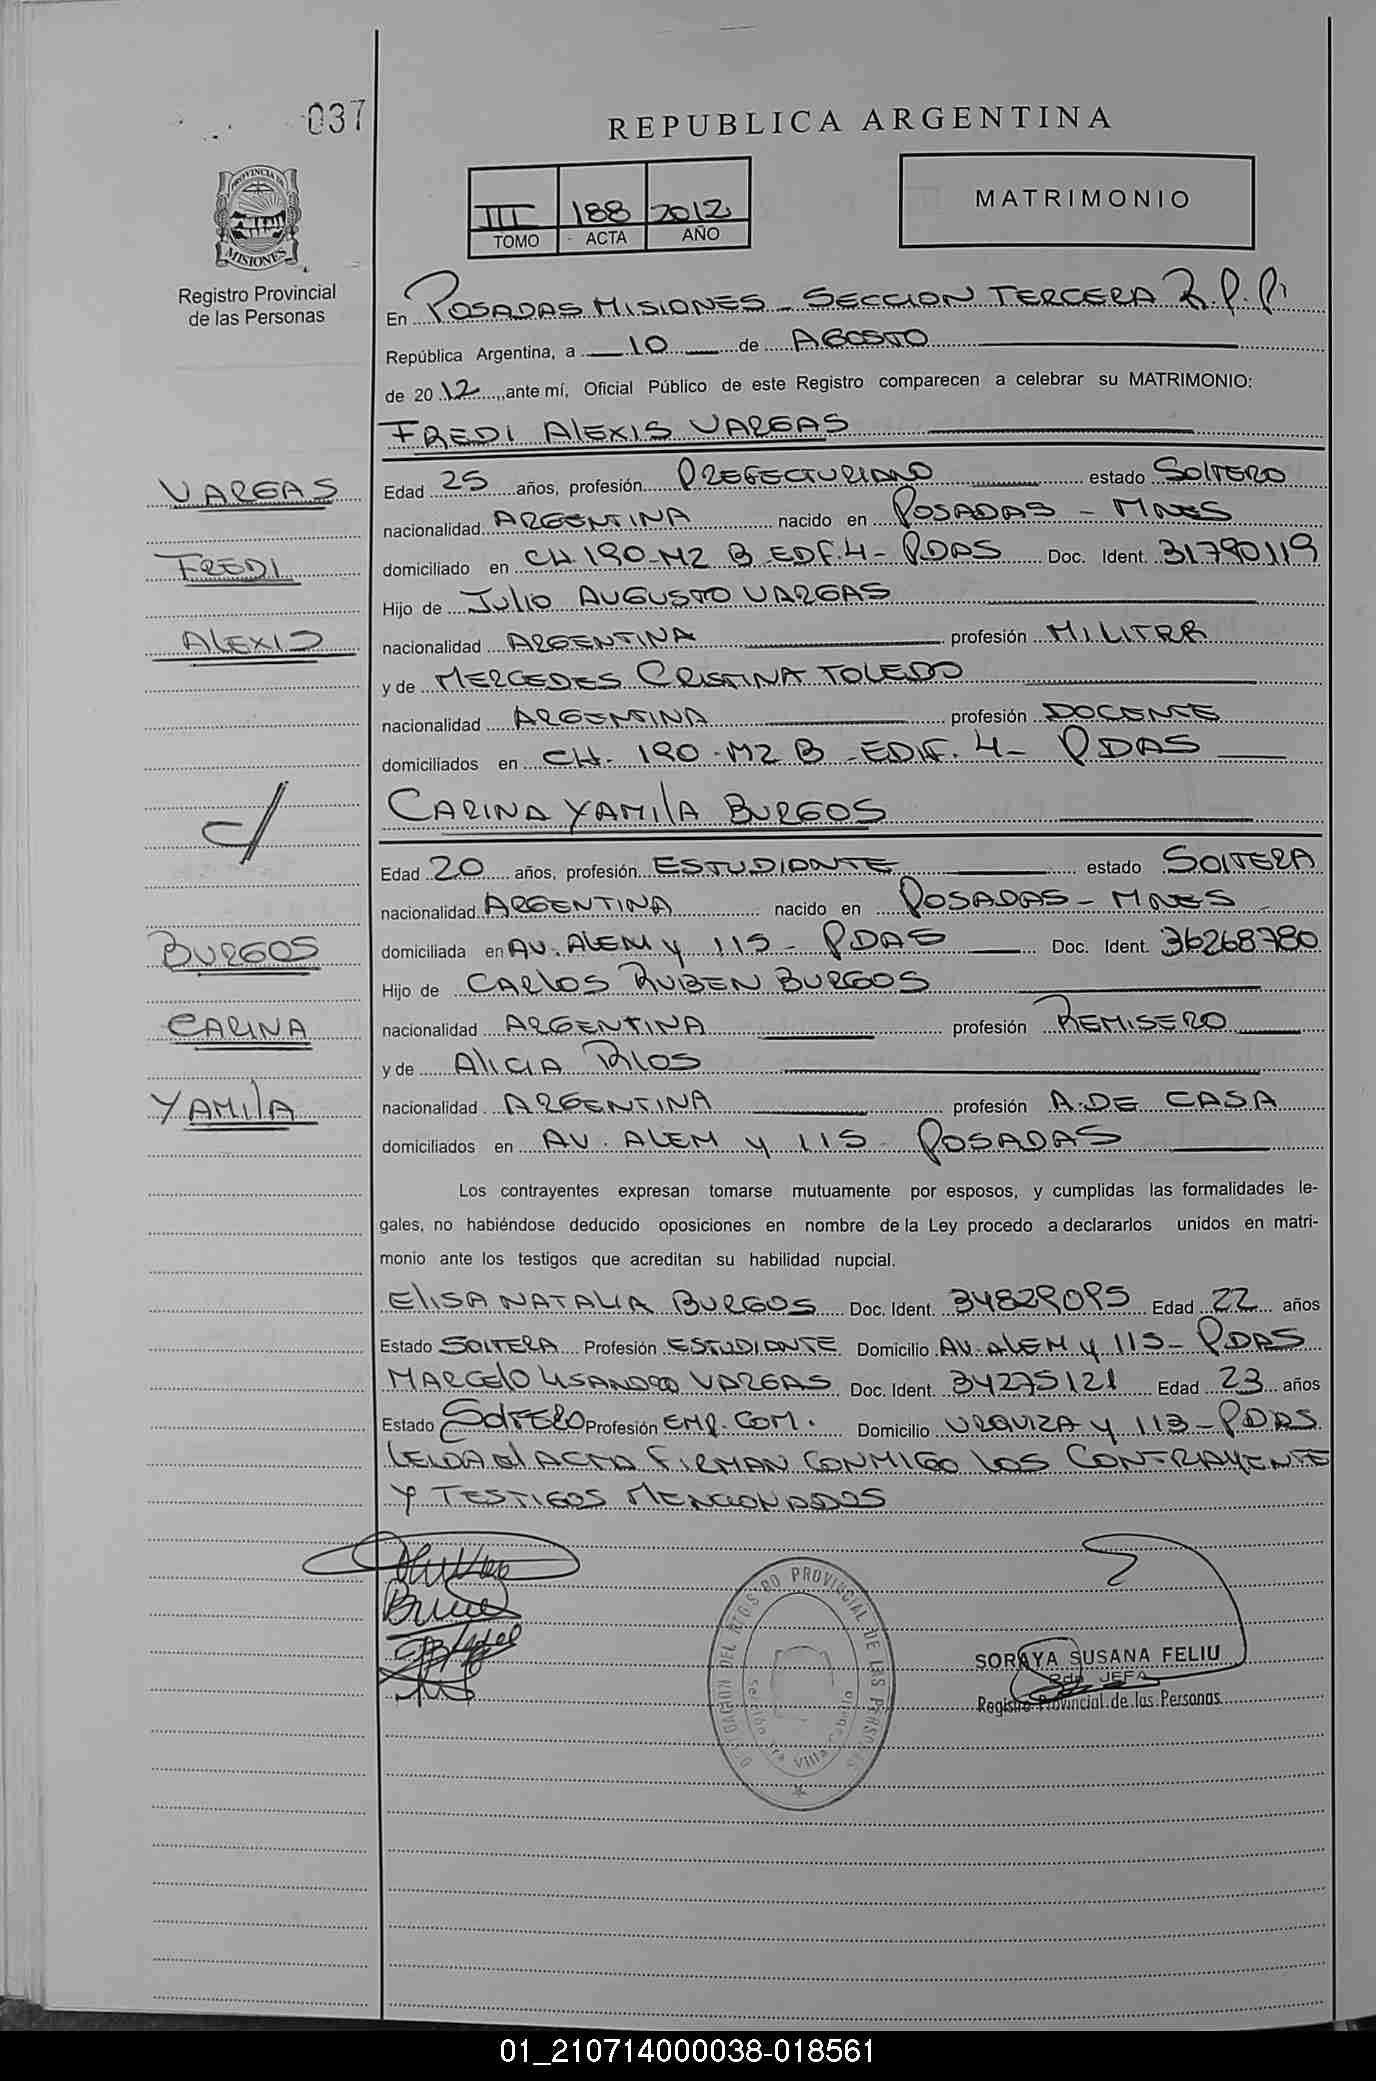 037
REPUBLICA ARGENTINA
III 188 2012
TOMO ACTA AÑO
MATRIMONIO
PROVINCIA DE
MISIONES
Registro Provincial
de las Personas
En POSADAS MISIONES - SECCION TERCERA R.P.P.
República Argentina, a 10 de AGOSTO
de 2012, ante mí, Oficial Público de este Registro comparecen a celebrar su MATRIMONIO:
FREDI ALEXIS VARGAS
VARGAS
FREDI
ALEXIS
Edad 25 años, profesión PREFECTURIANO estado SOLTERO
nacionalidad ARGENTINA nacido en POSADAS - MNES
domiciliado en CH. 190 - MZ B EDF. 4 - PDAS Doc. Ident. 31790119
Hijo de JULIO AUGUSTO VARGAS
nacionalidad ARGENTINA profesión MILITAR
y de MERCEDES CRISTINA TOLEDO
nacionalidad ARGENTINA profesión DOCENTE
domiciliados en CH. 190 - MZ B - EDIF. 4 - PDAS
C/
CARINA YAMILA BURGOS
BURGOS
CARINA
YAMILA
Edad 20 años, profesión ESTUDIANTE estado SOLTERA
nacionalidad ARGENTINA nacido en POSADAS - MNES
domiciliada en AV. ALEM y 115 - PDAS Doc. Ident. 36268780
Hijo de CARLOS RUBEN BURGOS
nacionalidad ARGENTINA profesión REMISERO
y de ALICIA RIOS
nacionalidad ARGENTINA profesión A. DE CASA
domiciliados en AV. ALEM y 115 - POSADAS
Los contrayentes expresan tomarse mutuamente por esposos, y cumplidas las formalidades le-
gales, no habiéndose deducido oposiciones en nombre de la Ley procedo a declararlos unidos en matri-
monio ante los testigos que acreditan su habilidad nupcial.
ELISA NATALIA BURGOS Doc. Ident. 34829095 Edad 22 años
Estado SOLTERA Profesión ESTUDIANTE Domicilio AV. ALEM y 115 - PDAS
MARCELO LISANDRO VARGAS Doc. Ident. 34275121 Edad 23 años
Estado SOLTERO Profesión EMP. COM. Domicilio URQUIZA y 113 - PDAS
LEIDA EL ACTA FIRMAN CONMIGO LOS CONTRAYENTE
Y TESTIGOS MENCIONADOS
DELEGACION DEL REGISTRO PROVINCIAL DE LAS PERSONAS
Sección 3ra Villa Cabello
SORAYA SUSANA FELIU
JEFA
Registro Provincial de las Personas
01_210714000038-018561